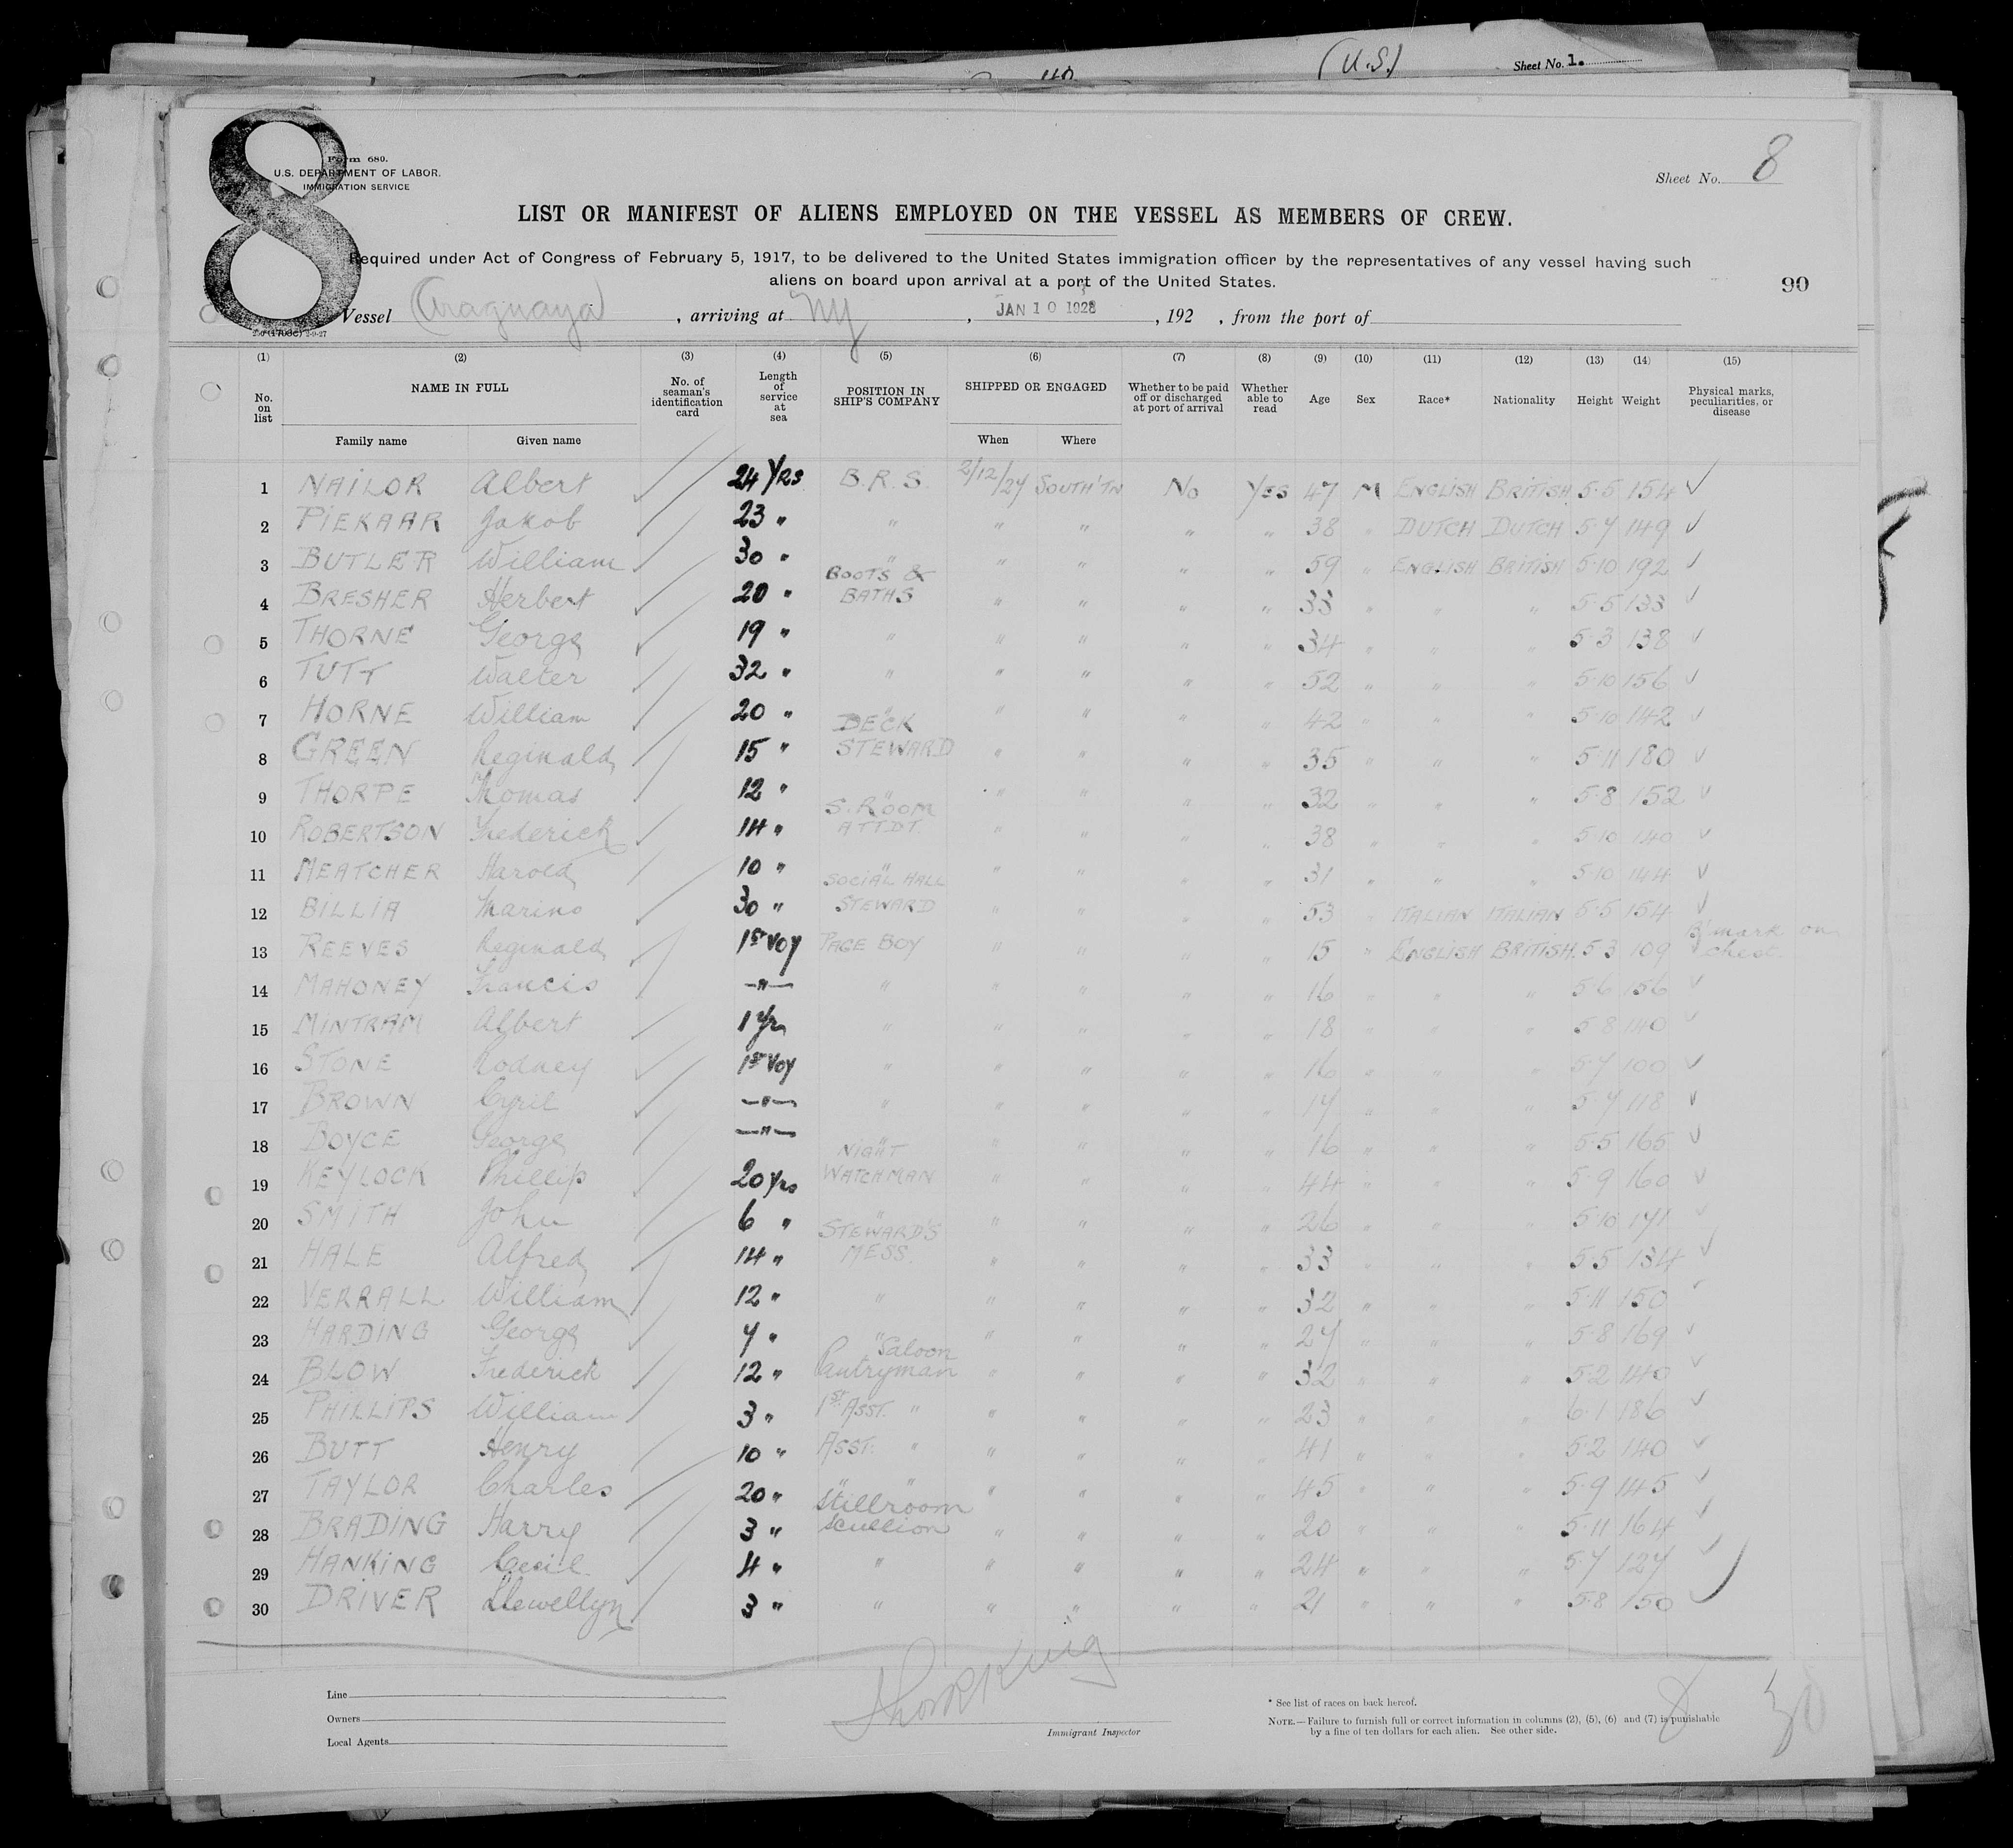 (U.S.) Sheet No. 1.
8
Form 680.
U.S. DEPARTMENT OF LABOR.
IMMIGRATION SERVICE
Sheet No. 8
LIST OR MANIFEST OF ALIENS EMPLOYED ON THE VESSEL AS MEMBERS OF CREW.
Required under Act of Congress of February 5, 1917, to be delivered to the United States immigration officer by the representatives of any vessel having such
aliens on board upon arrival at a port of the United States.
90
Vessel (Araguaya), arriving at NY, JAN 10 1928, 192 , from the port of
(1) (2) (3) (4) (5) (6) (7) (8) (9) (10) (11) (12) (13) (14) (15)
No. on list NAME IN FULL No. of seaman's identification card Length of service at sea POSITION IN SHIP'S COMPANY SHIPPED OR ENGAGED Whether to be paid off or discharged at port of arrival Whether able to read Age Sex Race* Nationality Height Weight Physical marks, peculiarities, or disease
Family name Given name When Where
1 NAILOR Albert 24 YRS B.R.S. 2/12/27 SOUTH'TN No YES 47 M ENGLISH BRITISH 5·5 154 ✓
2 PIEKAAR Jakob 23 " " " " " " 38 " DUTCH DUTCH 5·7 149 ✓
3 BUTLER William 30 " " " " " " 59 " ENGLISH BRITISH 5·10 192 ✓
4 BRESHER Herbert 20 " BOOTS & BATHS " " " " 33 " " " 5·5 133 ✓
5 THORNE George 19 " " " " " " 34 " " " 5·3 138 ✓
6 TUTT Walter 32 " " " " " " 52 " " " 5·10 156 ✓
7 HORNE William 20 " " " " " " 42 " " " 5·10 142 ✓
8 GREEN Reginald 15 " DECK STEWARD " " " " 35 " " " 5·11 180 ✓
9 THORPE Thomas 12 " " " " " " 32 " " " 5·8 152 ✓
10 ROBERTSON Frederick 14 " S. ROOM ATTDT. " " " " 38 " " " 5·10 140 ✓
11 MEATCHER Harold 10 " " " " " " 31 " " " 5·10 144 ✓
12 BILLIA Marino 30 " SOCIAL HALL STEWARD " " " " 53 " ITALIAN ITALIAN 5·5 154 ✓
13 REEVES Reginald 1st VOY PAGE BOY " " " " 15 " ENGLISH BRITISH. 5·3 109 B'mark on chest.
14 MAHONEY Francis —"— " " " " " 16 " " " 5·6 156 ✓
15 MINTRAM Albert 1 Yr " " " " " 18 " " " 5·8 140 ✓
16 STONE Rodney 1st VOY " " " " " 16 " " " 5·7 100 ✓
17 BROWN Cyril —"— " " " " " 17 " " " 5·7 118 ✓
18 BOYCE George —"— " " " " " 16 " " " 5·5 165 ✓
19 KEYLOCK Phillip 20 Yrs NIGHT WATCHMAN " " " " 44 " " " 5·9 160 ✓
20 SMITH John 6 " " " " " " 26 " " " 5·10 171 ✓
21 HALE Alfred 14 " STEWARD'S MESS. " " " " 33 " " " 5·5 134 ✓
22 VERRALL William 12 " " " " " " 32 " " " 5·11 150 ✓
23 HARDING George 7 " " " " " " 27 " " " 5·8 169 ✓
24 BLOW Frederick 12 " Saloon Pantryman " " " " 32 " " " 5·2 140 ✓
25 PHILLIPS William 3 " 1st ASST. " " " " " 23 " " " 6·1 186 ✓
26 BUTT Henry 10 " ASST. " " " " " 41 " " " 5·2 140 ✓
27 TAYLOR Charles 20 " " " " " " " 45 " " " 5·9 145 ✓
28 BRADING Harry 3 " Stillroom Scullion " " " " 20 " " " 5·11 164 ✓
29 HANKING Cecil 4 " " " " " " 24 " " " 5·7 127 ✓
30 DRIVER Llewellyn 3 " " " " " " 21 " " " 5·8 150 ✓
Line
Owners
Local Agents
Immigrant Inspector
* See list of races on back hereof.
NOTE.—Failure to furnish full or correct information in columns (2), (5), (6) and (7) is punishable
by a fine of ten dollars for each alien. See other side.
30